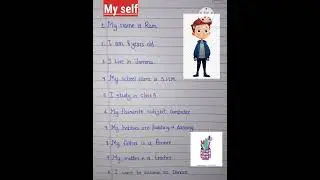 My self
1. My name is Ram
2. I am 8 years old
3. I Live in Jammu
4. My school name is
5. I study in class
6. My Favourite subject Computer
7. My hobbies are &
8. My father is a Farmer
9. My mother is a teacher
10. I want to become a Dancer